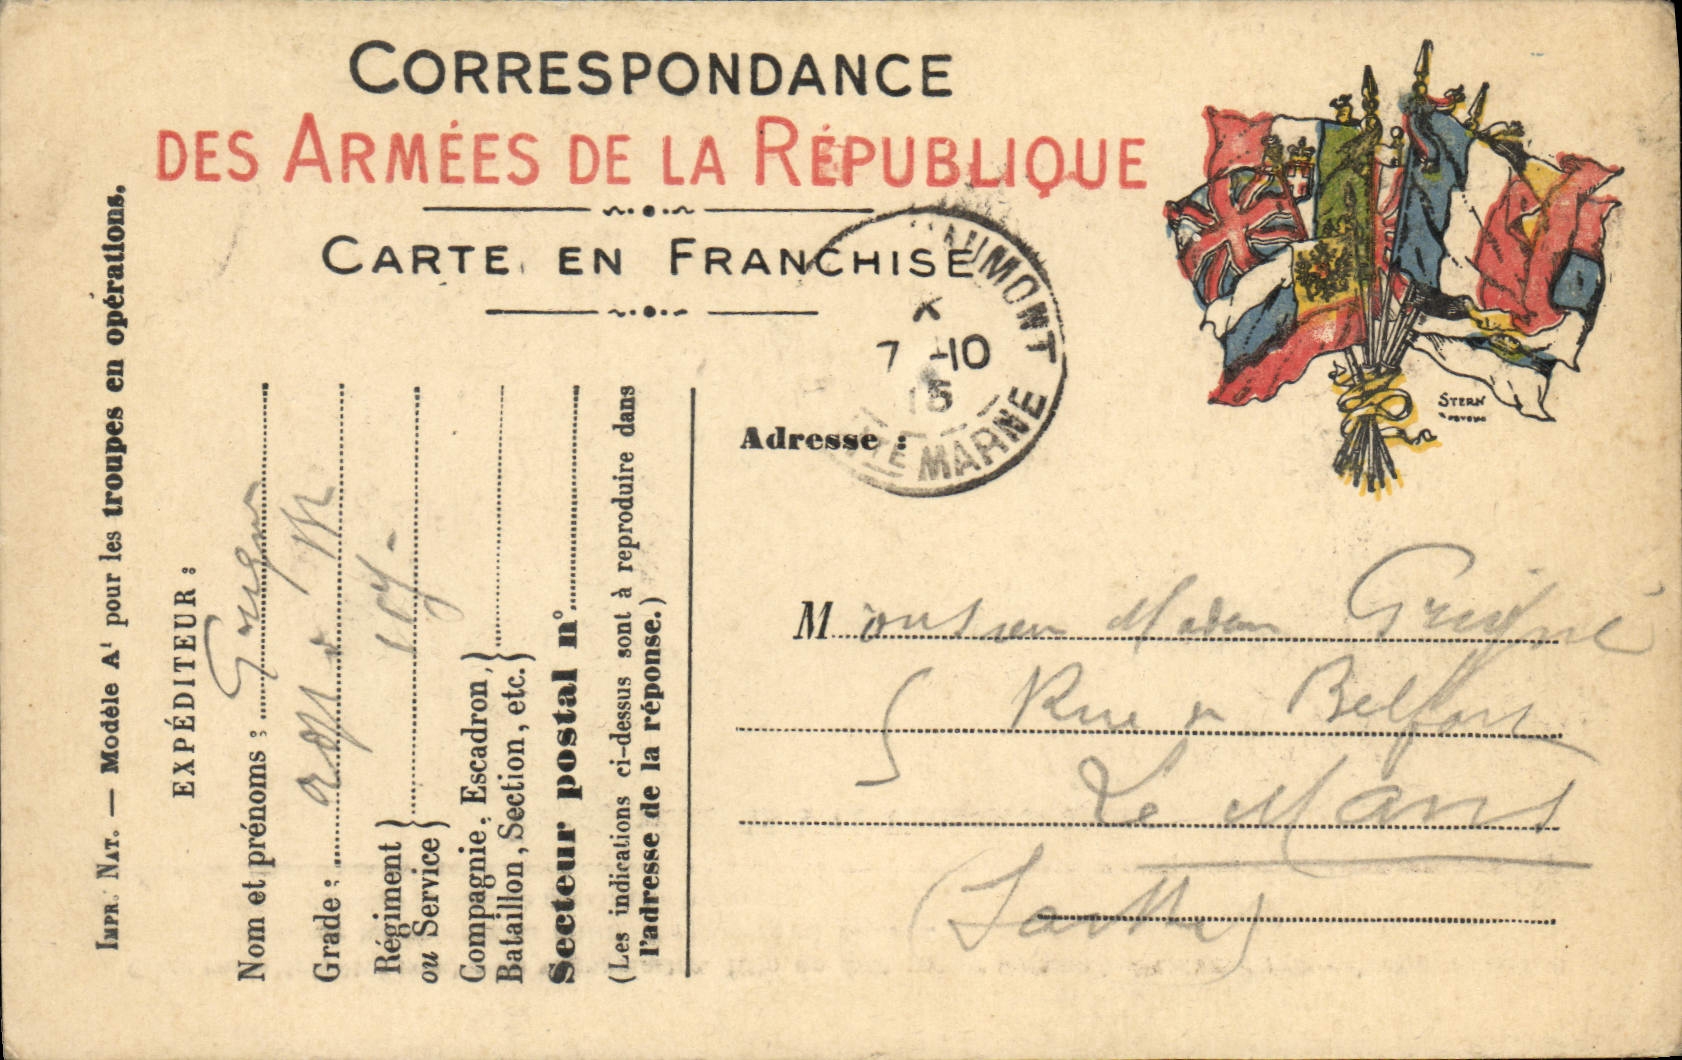 CORRESPONDANCE
DES ARMÉES DE LA RÉPUBLIQUE
CARTE EN FRANCHISE
CHAUMONT
7 -10
15
HTE MARNE
STERN
IMPR. NAT. — Modèle A¹ pour les troupes en opérations.
EXPÉDITEUR :
Nom et prénoms :
Grade :
Régiment
ou Service
Compagnie, Escadron,
Bataillon, Section, etc.
Secteur postal n°
(Les indications ci-dessus sont à reproduire dans
l'adresse de la réponse.)
Adresse :
Monsieur Madame Grigné
5 Rue de Belfort
Le Mans
(Sarthe)